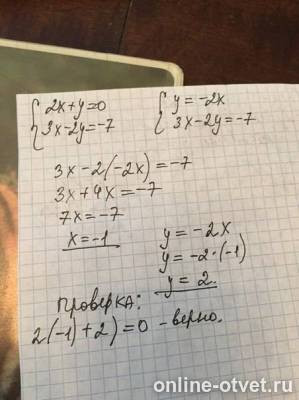 {2x+y=0 {y=-2x
3x-2y=-7 3x-2y=-7
3x-2(-2x)=-7
3x+4x=-7
7x=-7
x=-1
y=-2x
y=-2·(-1)
y=2.
проверка:
2(-1)+2)=0 -верно.
online-otvet.ru